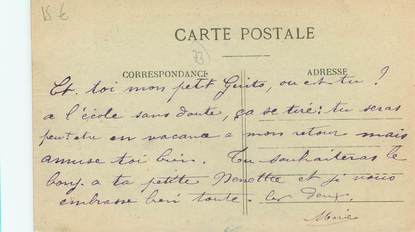 15 €
CARTE POSTALE
CORRESPONDANCE
ADRESSE
Et toi mon petit Guito, ou es tu ?
a l'école sans doute, ça se tire : tu seras
peut etre en vacance a mon retour mais
amuse toi bien. Tu souhaiteras le
bonj. a ta petite Nenette et je vous
embrasse bien toute. les Deux
Marie